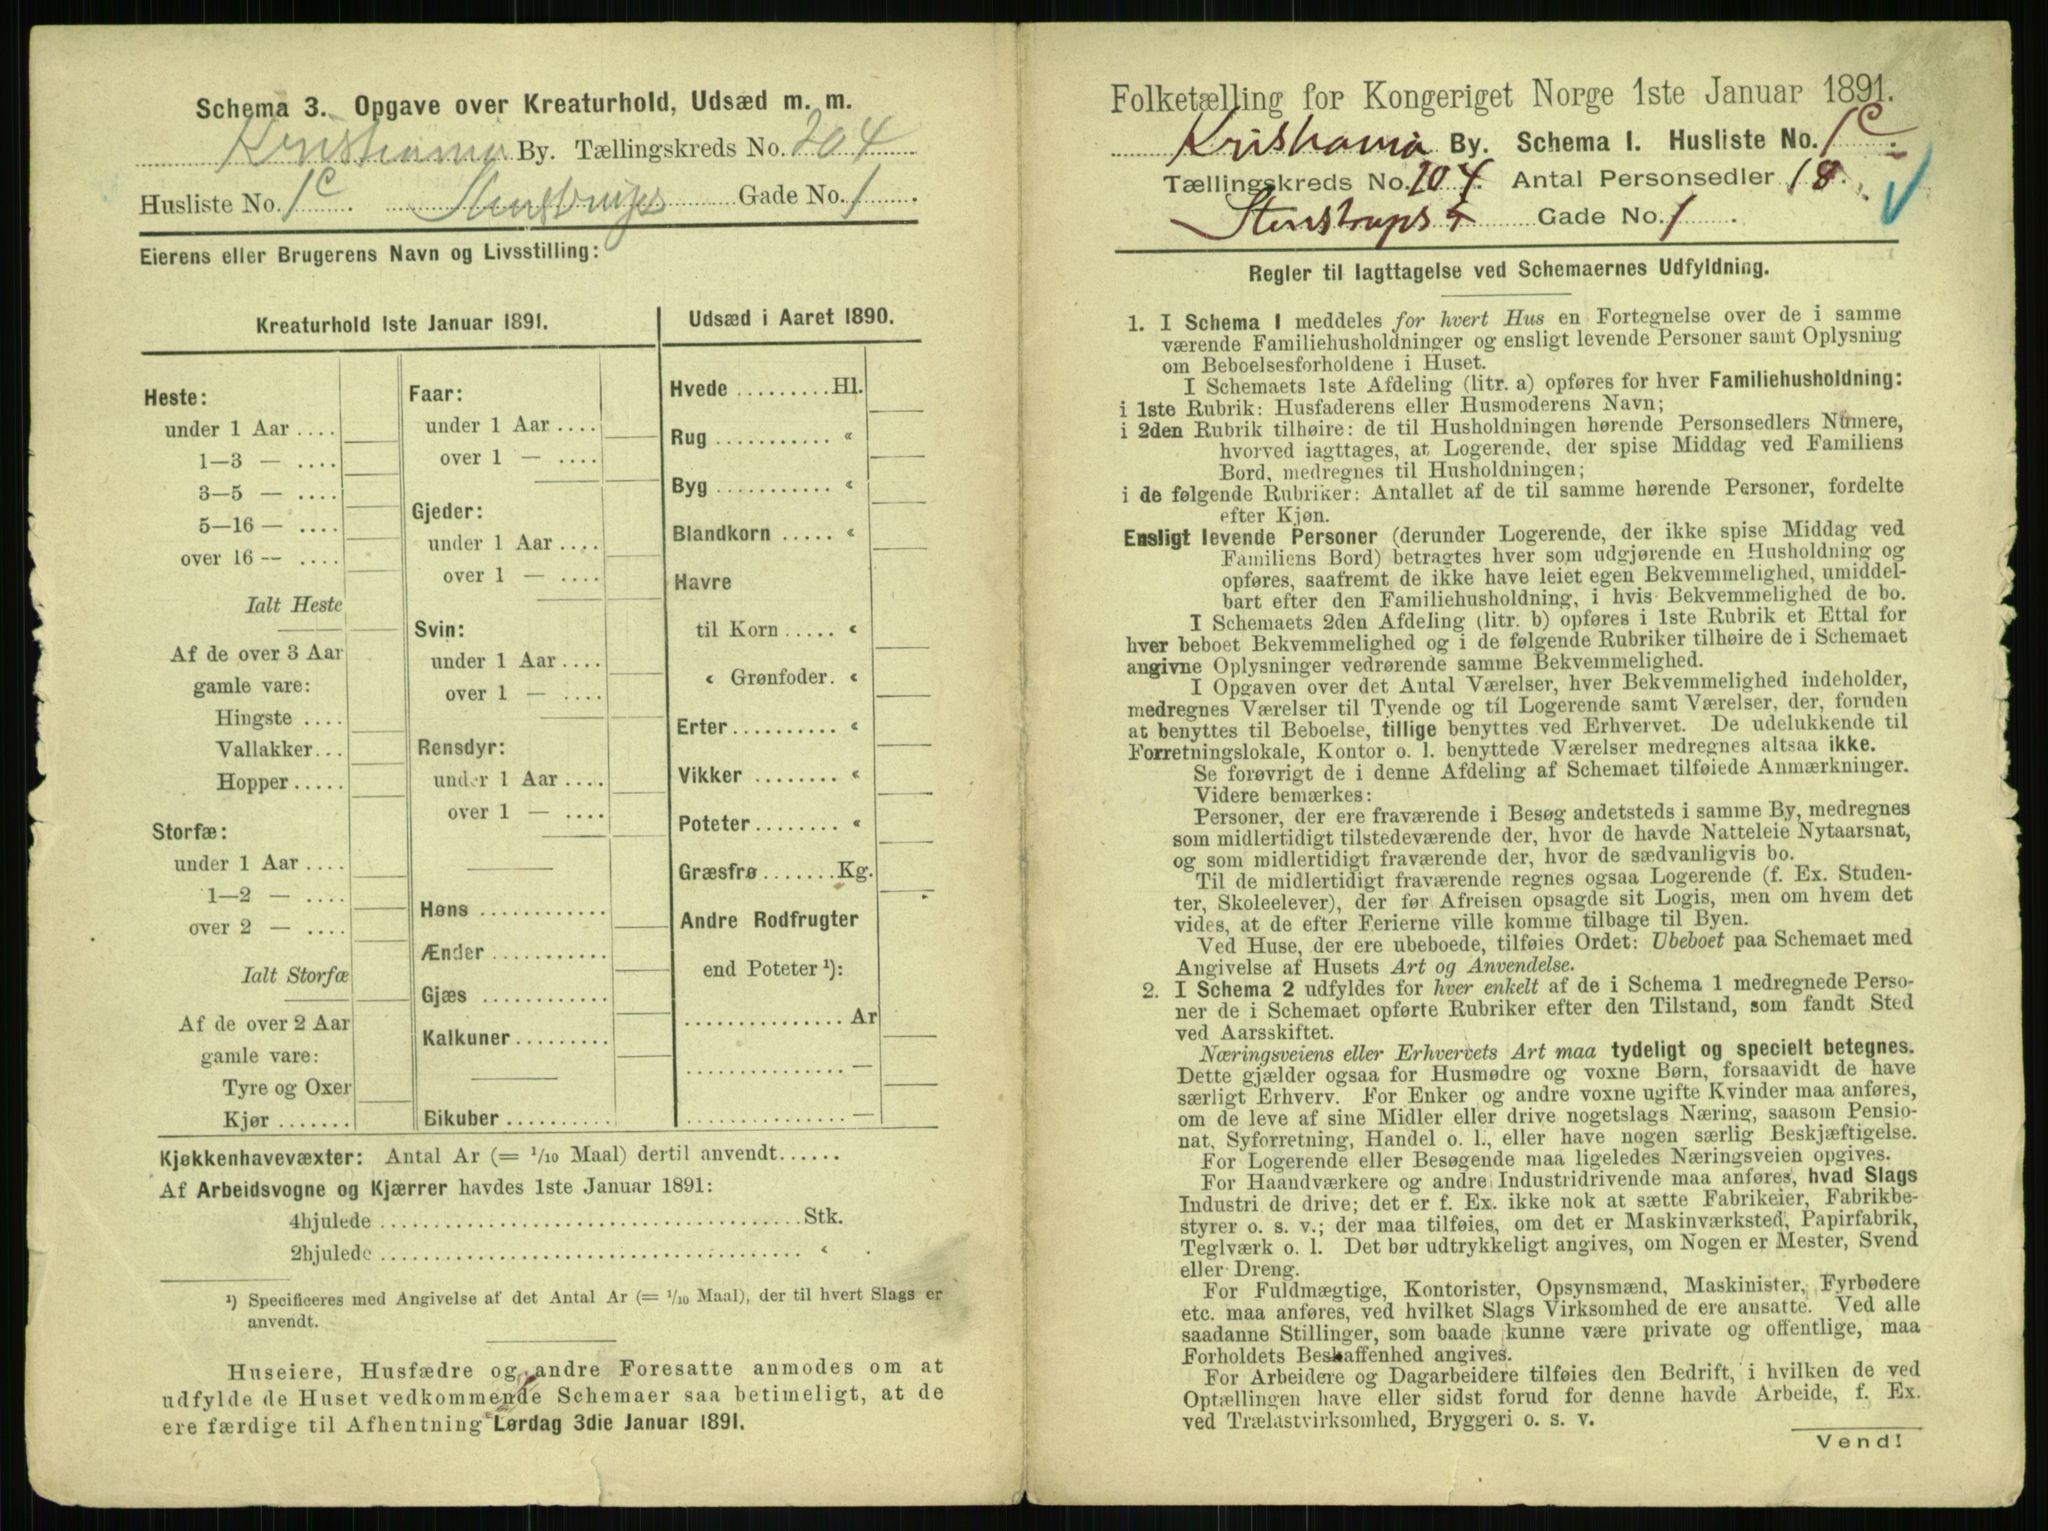 Schema 3. Opgave over Kreaturhold, Udsæd m. m.
Kristiania By. Tællingskreds No. 204
Husliste No. 1c Stenstrups Gade No. 1
Eierens eller Brugerens Navn og Livsstilling:
Kreaturhold 1ste Januar 1891.
Heste:
under 1 Aar ....
1—3 — ....
3—5 — ....
5—16 — ....
over 16 — ....
Ialt Heste
Af de over 3 Aar
gamle vare:
Hingste ....
Vallakker...
Hopper.....
Storfæ:
under 1 Aar ....
1—2 — ....
over 2 — ....
Ialt Storfæ
Af de over 2 Aar
gamle vare:
Tyre og Oxer
Kjør .......
Faar:
under 1 Aar ....
over 1 — ....
Gjeder:
under 1 Aar ....
over 1 — ....
Svin:
under 1 Aar ....
over 1 — ....
Rensdyr:
under 1 Aar ....
over 1 — ....
Høns ............
Ænder ...........
Gjæs ............
Kalkuner.........
Bikuber ..........
Udsæd i Aaret 1890.
Hvede .........Hl.
Rug ........... «
Byg ........... «
Blandkorn ..... «
Havre
til Korn ..... «
« Grønfoder. «
Erter.......... «
Vikker ........ «
Poteter........ «
Græsfrø .......Kg.
Andre Rodfrugter
end Poteter ¹):
............... Ar
............... —
............... —
Kjøkkenhavevæxter: Antal Ar (= 1/10 Maal) dertil anvendt......
Af Arbeidsvogne og Kjærrer havdes 1ste Januar 1891:
4hjulede ....................................Stk.
2hjulede .................................... «
¹) Specificeres med Angivelse af det Antal Ar (= 1/10 Maal), der til hvert Slags er
anvendt.
Huseiere, Husfædre og andre Foresatte anmodes om at
udfylde de Huset vedkommende Schemaer saa betimeligt, at de
ere færdige til Afhentning Lørdag 3die Januar 1891.
Folketælling for Kongeriget Norge 1ste Januar 1891.
Kristiania By. Schema I. Husliste No. 1c
Tællingskreds No. 204. Antal Personsedler 18.
Stenstrups Gade No. 1
Regler til Iagttagelse ved Schemaernes Udfyldning.
1. I Schema 1 meddeles for hvert Hus en Fortegnelse over de i samme
værende Familiehusholdninger og ensligt levende Personer samt Oplysning
om Beboelsesforholdene i Huset.
I Schemaets 1ste Afdeling (litr. a) opføres for hver Familiehusholdning:
i 1ste Rubrik: Husfaderens eller Husmoderens Navn;
i 2den Rubrik tilhøire: de til Husholdningen hørende Personsedlers Numere,
hvorved iagttages, at Logerende, der spise Middag ved Familiens
Bord, medregnes til Husholdningen;
i de følgende Rubriker: Antallet af de til samme hørende Personer, fordelte
efter Kjøn.
Ensligt levende Personer (derunder Logerende, der ikke spise Middag ved
Familiens Bord) betragtes hver som udgjørende en Husholdning og
opføres, saafremt de ikke have leiet egen Bekvemmelighed, umiddel-
bart efter den Familiehusholdning, i hvis Bekvemmelighed de bo.
I Schemaets 2den Afdeling (litr. b) opføres i 1ste Rubrik et Ettal for
hver beboet Bekvemmelighed og i de følgende Rubriker tilhøire de i Schemaet
angivne Oplysninger vedrørende samme Bekvemmelighed.
I Opgaven over det Antal Værelser, hver Bekvemmelighed indeholder,
medregnes Værelser til Tyende og til Logerende samt Værelser, der, foruden
at benyttes til Beboelse, tillige benyttes ved Erhvervet. De udelukkende til
Forretningslokale, Kontor o. l. benyttede Værelser medregnes altsaa ikke.
Se forøvrigt de i denne Afdeling af Schemaet tilføiede Anmærkninger.
Videre bemærkes:
Personer, der ere fraværende i Besøg andetsteds i samme By, medregnes
som midlertidigt tilstedeværende der, hvor de havde Natteleie Nytaarsnat,
og som midlertidigt fraværende der, hvor de sædvanligvis bo.
Til de midlertidigt fraværende regnes ogsaa Logerende (f. Ex. Studen-
ter, Skoleelever), der før Afreisen opsagde sit Logis, men om hvem det
vides, at de efter Ferierne ville komme tilbage til Byen.
Ved Huse, der ere ubeboede, tilføies Ordet: Ubeboet paa Schemaet med
Angivelse af Husets Art og Anvendelse.
2. I Schema 2 udfyldes for hver enkelt af de i Schema 1 medregnede Perso-
ner de i Schemaet opførte Rubriker efter den Tilstand, som fandt Sted
ved Aarsskiftet.
Næringsveiens eller Erhvervets Art maa tydeligt og specielt betegnes.
Dette gjælder ogsaa for Husmødre og voxne Børn, forsaavidt de have
særligt Erhverv. For Enker og andre voxne ugifte Kvinder maa anføres,
om de leve af sine Midler eller drive nogetslags Næring, saasom Pensio-
nat, Syforretning, Handel o. l., eller have nogen særlig Beskjæftigelse.
For Logerende eller Besøgende maa ligeledes Næringsveien opgives.
For Haandværkere og andre Industridrivende maa anføres, hvad Slags
Industri de drive; det er f. Ex. ikke nok at sætte Fabrikeier, Fabrikbe-
styrer o. s. v.; der maa tilføies, om det er Maskinværksted, Papirfabrik,
Teglværk o. l. Det bør udtrykkeligt angives, om Nogen er Mester, Svend
eller Dreng.
For Fuldmægtige, Kontorister, Opsynsmænd, Maskinister, Fyrbødere
etc. maa anføres, ved hvilket Slags Virksomhed de ere ansatte. Ved alle
saadanne Stillinger, som baade kunne være private og offentlige, maa
Forholdets Beskaffenhed angives.
For Arbeidere og Dagarbeidere tilføies den Bedrift, i hvilken de ved
Optællingen have eller sidst forud for denne havde Arbeide, f. Ex.
ved Trælastvirksomhed, Bryggeri o. s. v.
Vend!